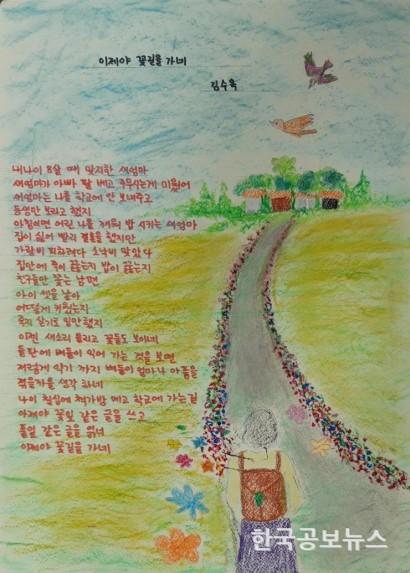 이제야 꽃길을 가네
김수옥
내나이 8살 때 맞이한 새엄마
새엄마가 아빠 팔 베고 주무시는게 미웠어
새엄마는 나를 학교에 안 보내주고
동생만 보라고 했지
아침이면 어린 나를 깨워 밥 시키는 새엄마
집이 싫어 빨리 결혼을 했지만
가랑비 피하려다 소낙비 맞았다
집안에 죽이 끓는지 밥이 끓는지
친구들만 쫓는 남편
아이 셋을 낳아
어떻게 키웠는지
죽지 살기로 일만 했지
이젠 새소리 들리고 꽃들도 보이네
들판에 벼들이 익어 가는 것을 보면
저렇게 익기 까지 벼들이 얼마나 아픔을
겪을까를 생각 하네
나이 칠십에 책가방 메고 학교에 가는길
이제야 꽃잎 같은 글을 쓰고
풀잎 같은 글을 읽네
이제야 꽃길을 가네
한국공보뉴스